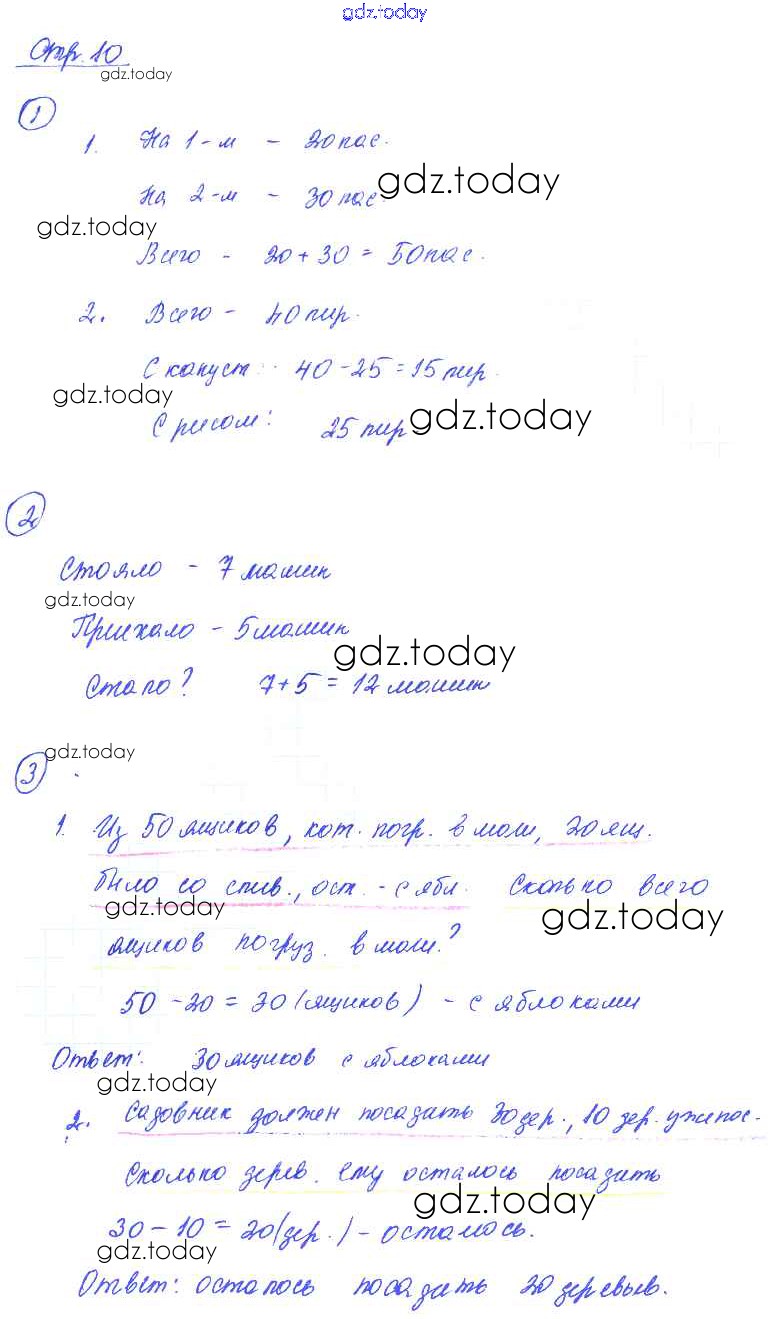 gdz.today
Стр. 10
gdz.today
1
1. На 1-м - 20 пас.
На 2-м - 30 пас.
gdz.today
gdz.today
Всего - 20 + 30 = 50 пас.
2. Всего - 40 пир.
С капуст: 40 - 25 = 15 пир.
gdz.today
С рисом: 25 пир.
gdz.today
2
Стояло - 7 машин
gdz.today
Приехало - 5 машин
gdz.today
Стало? 7 + 5 = 12 машин
gdz.today
3
1. Из 50 ящиков, кот. погр. в маш, 20 ящ.
было со слив., ост. - с ябл. Сколько всего
gdz.today
gdz.today
ящиков погруз. в маш.?
50 - 20 = 30 (ящиков) - с яблоками
Ответ: 30 ящиков с яблоками
gdz.today
2. Садовник должен посадить 30 дер., 10 дер. уже пос.
Сколько дерев. ему осталось посадить
gdz.today
30 - 10 = 20 (дер.) - осталось.
gdz.today
Ответ: осталось посадить 20 деревьев.